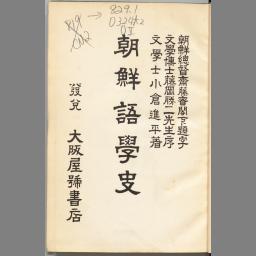 朝鮮總督齋藤實閣下題字
文學博士藤岡勝二先生序
文學士小倉進平著
朝鮮語學史
發兌 大阪屋號書店
829.1